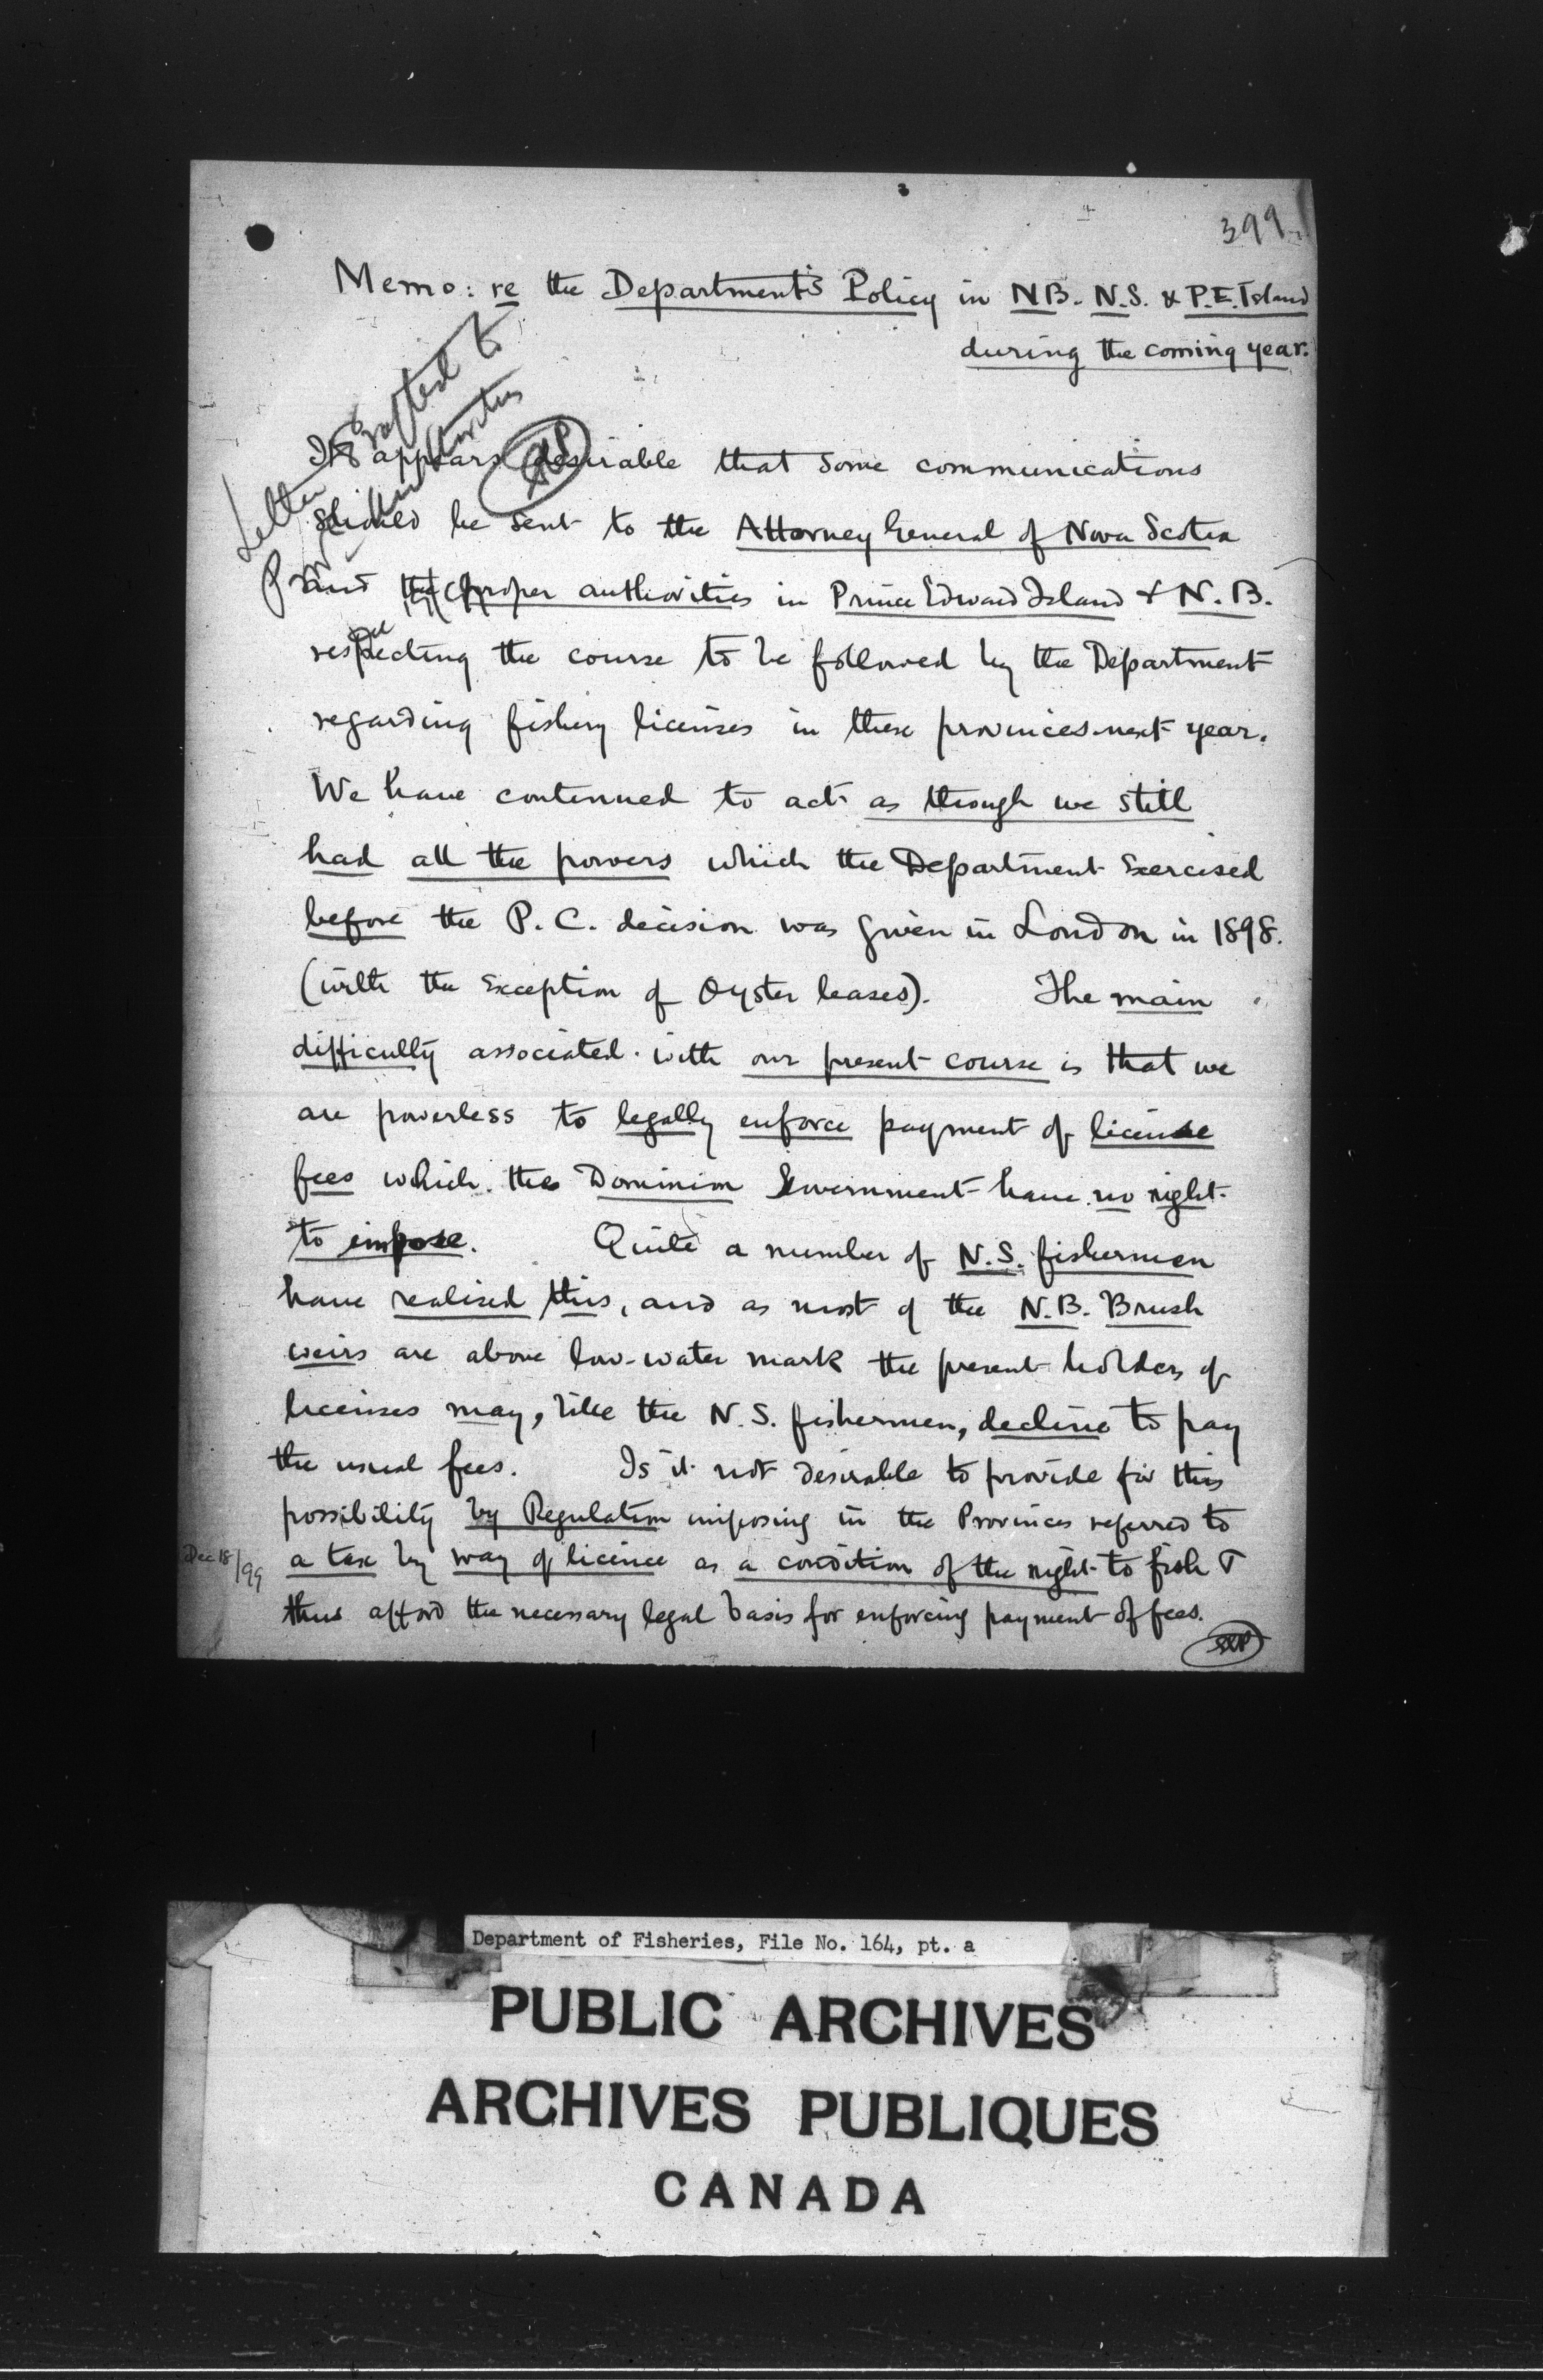 399
Memo: re the Department's Policy in N.B. N.S. & P.E. Island
during the coming year.
Letter drafted to
Prov. authorities
It appears desirable that some communications
should be sent to the Attorney General of Nova Scotia
and the proper authorities in Prince Edward Island & N.B.
respecting the course to be followed by the Department
regarding fishery licenses in these provinces next year.
We have continued to act as though we still
had all the powers which the Department exercised
before the P.C. decision was given in London in 1898.
(with the exception of Oyster leases). The main
difficulty associated with our present course is that we
are powerless to legally enforce payment of license
fees which the Dominion Government have no right
to impose. Quite a number of N.S. fishermen
have realised this, and as most of the N.B. Brush
weirs are above low-water mark the present holders of
licenses may, like the N.S. fishermen, decline to pay
the usual fees. Is it not desirable to provide for this
possibility by Regulation imposing in the Provinces referred to
Dec 18/99
a tax by way of licence as a condition of the right to fish &
thus afford the necessary legal basis for enforcing payment of fees.
Department of Fisheries, File No. 164, pt. a
PUBLIC ARCHIVES
ARCHIVES PUBLIQUES
CANADA